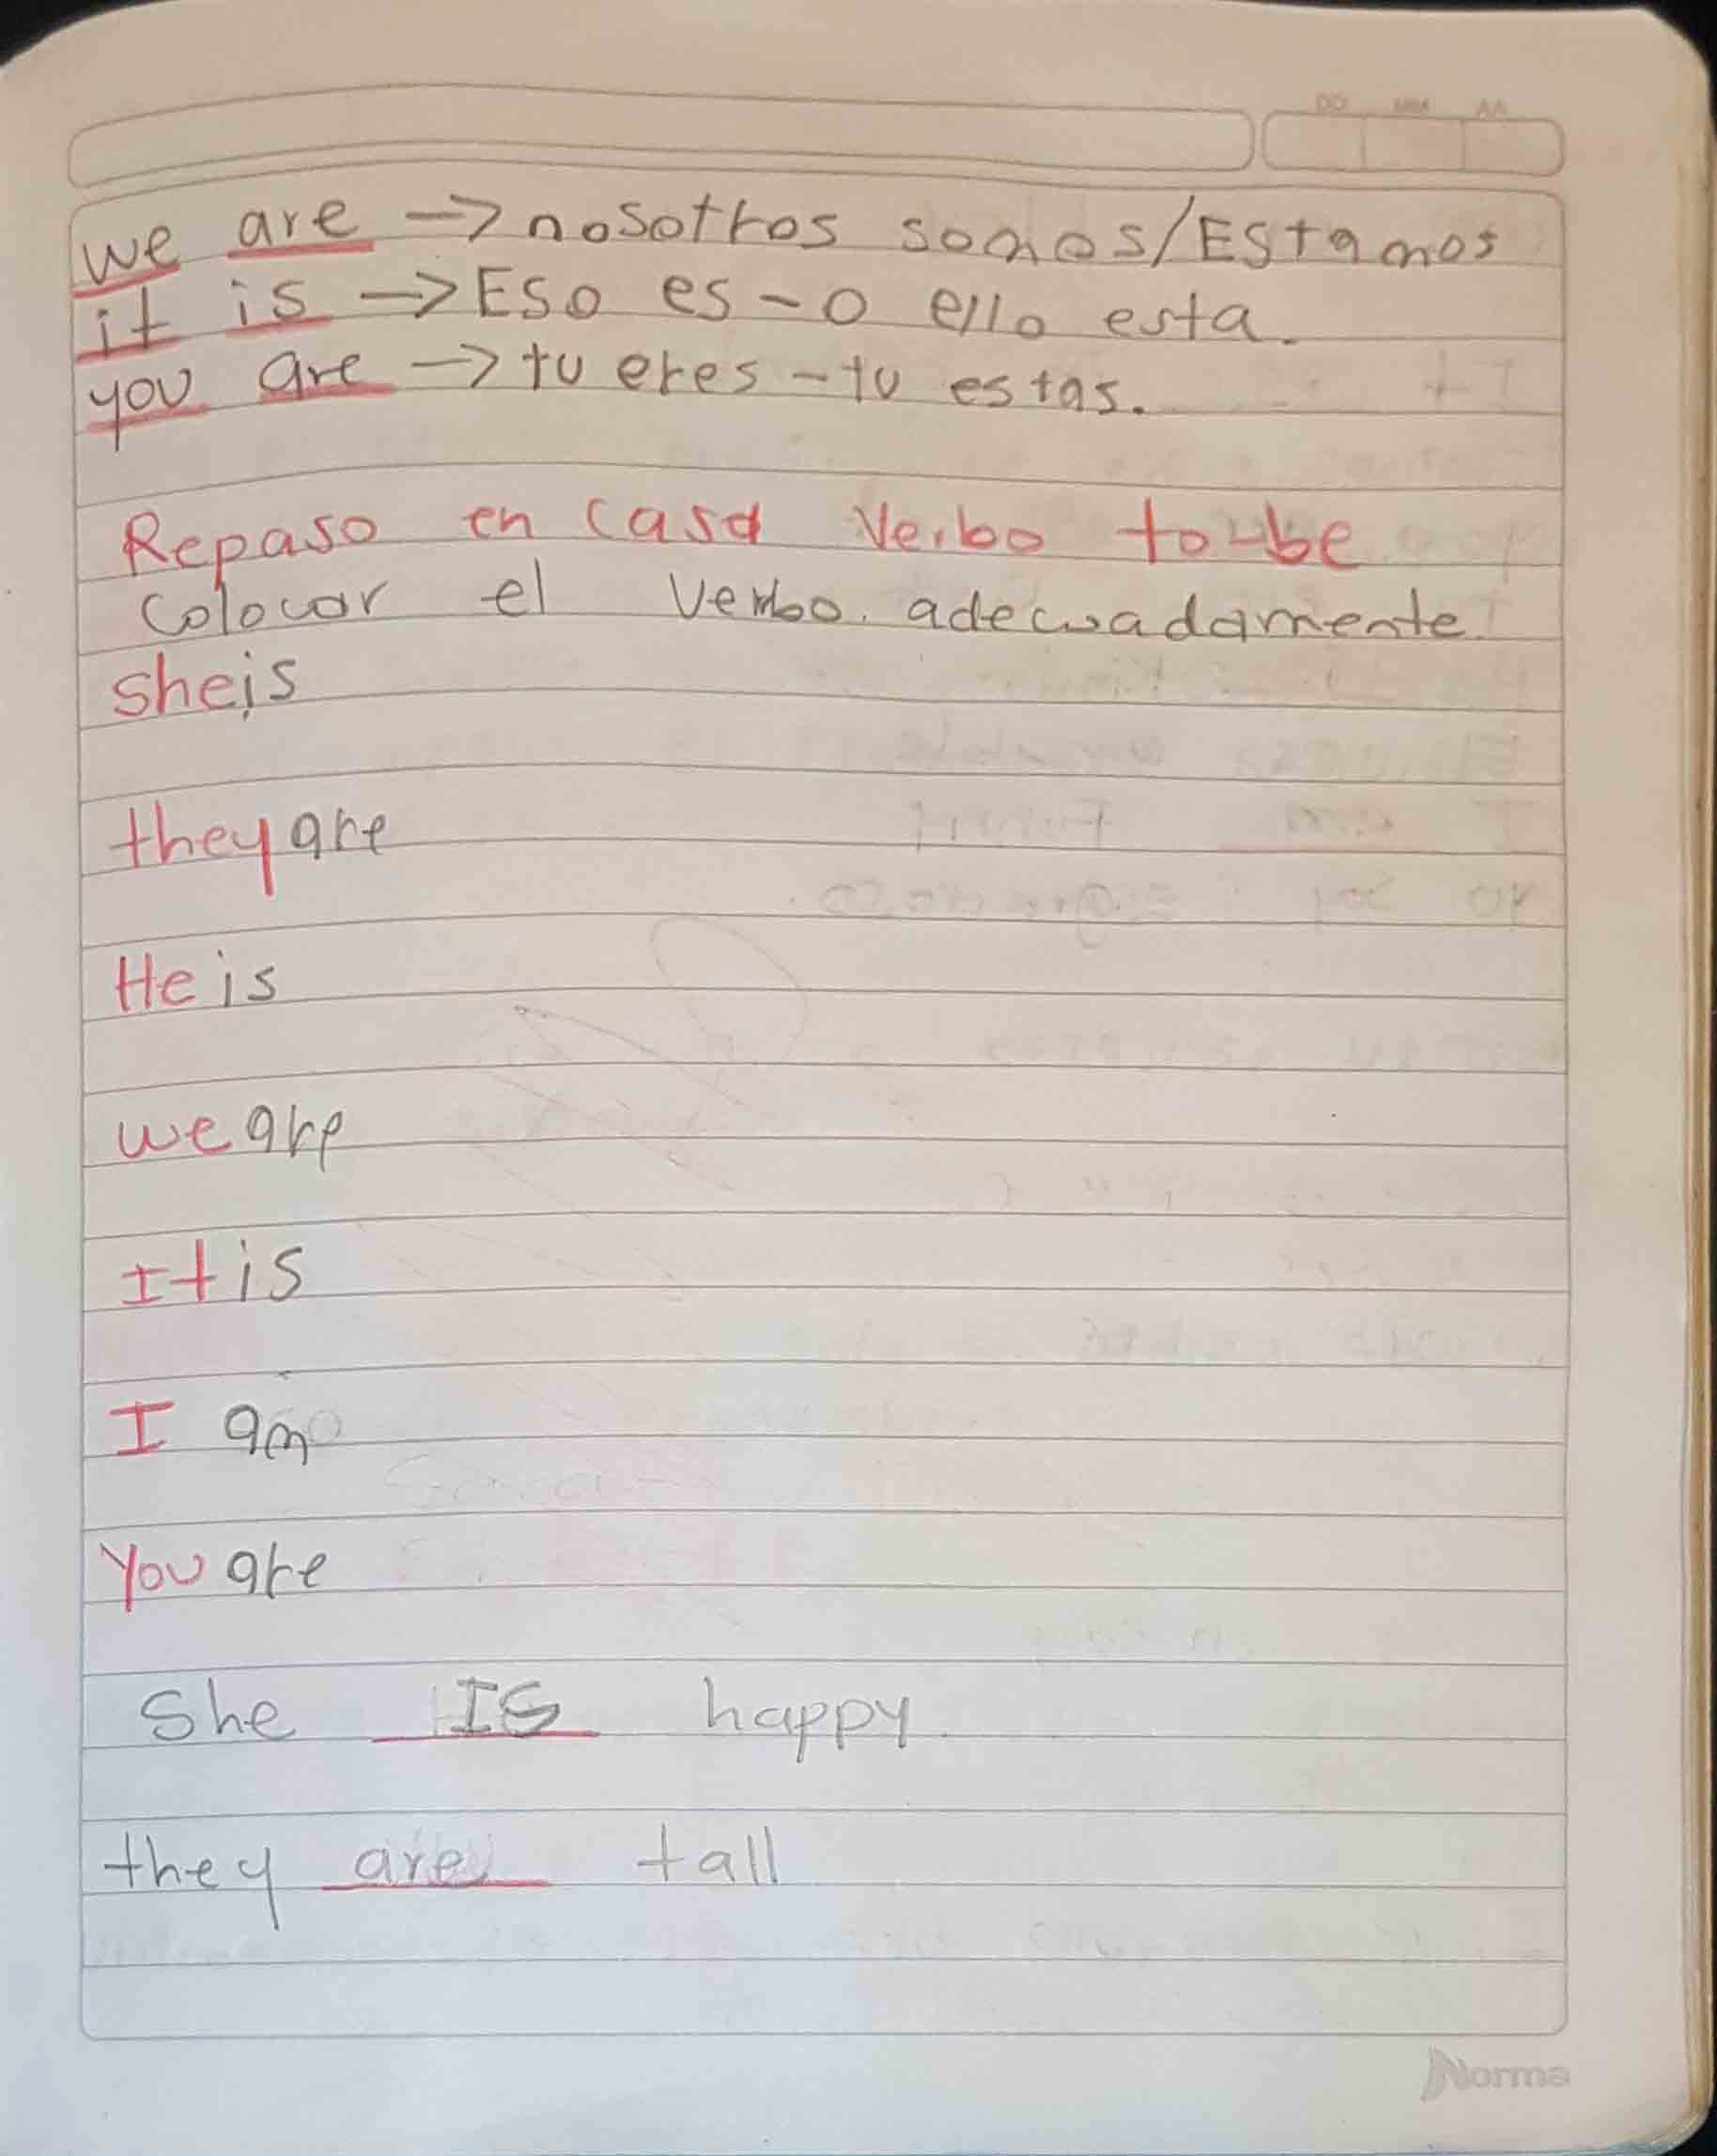 DD MM AA
we are -> nosotros somos/Estamos
it is -> Eso es - o ello esta.
you are -> tu eres - tu estas.
Repaso en casa Verbo to-be
Colocar el Verbo adecuadamente
she is
they are
He is
we are
It is
I am
You are
She IS happy.
they are tall
Norma